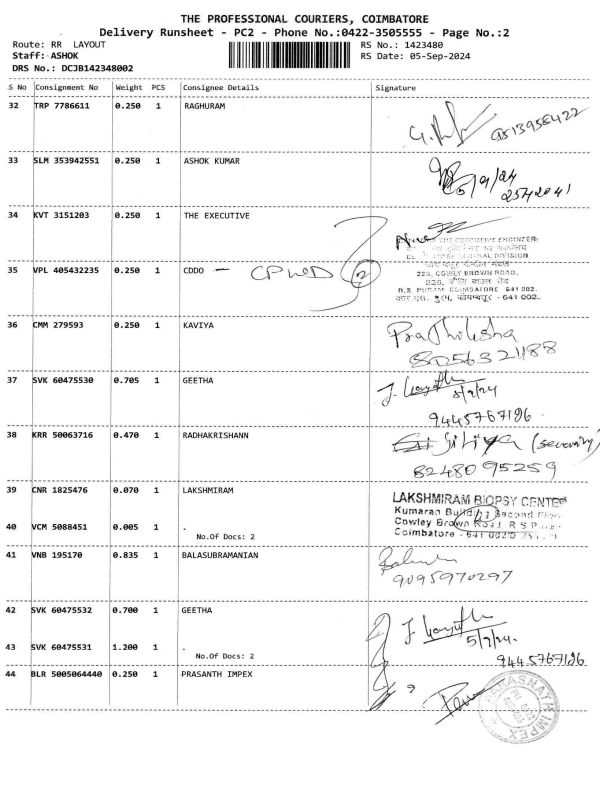 THE PROFESSIONAL COURIERS, COIMBATORE
Delivery Runsheet - PC2 - Phone No.:0422-3505555 - Page No.:2
Route: RR LAYOUT
Staff: ASHOK
DRS No.: DCJB142348002
RS No.: 1423480
RS Date: 05-Sep-2024
S No Consignment No Weight PCS Consignee Details Signature
32 TRP 7786611 0.250 1 RAGHURAM
33 SLM 353942551 0.250 1 ASHOK KUMAR
34 KVT 3151203 0.250 1 THE EXECUTIVE
THE EXECUTIVE ENGINEER
CENTRAL DIVISION
225, COWLY BROWN ROAD,
35 VPL 405432235 0.250 1 CDDO - CPWD 2
R.S. PURAM COIMBATORE 641 002.
- 641 002.
36 CMM 279593 0.250 1 KAVIYA
Prathiksha
8056321188
37 SVK 60475530 0.705 1 GEETHA
9445767196
38 KRR 50063716 0.470 1 RADHAKRISHANN
(security)
82480 95259
39 CNR 1825476 0.070 1 LAKSHMIRAM
LAKSHMIRAM BIOPSY CENTER
Kumaran Building Second
Cowley Brown Road, R S
Coimbatore - 641 002
40 VCM 5088451 0.005 1 .
No.Of Docs: 2
41 VNB 195170 0.835 1 BALASUBRAMANIAN
9095970297
42 SVK 60475532 0.700 1 GEETHA
43 SVK 60475531 1.200 1 .
No.Of Docs: 2
9445767196
44 BLR 5005064440 0.250 1 PRASANTH IMPEX